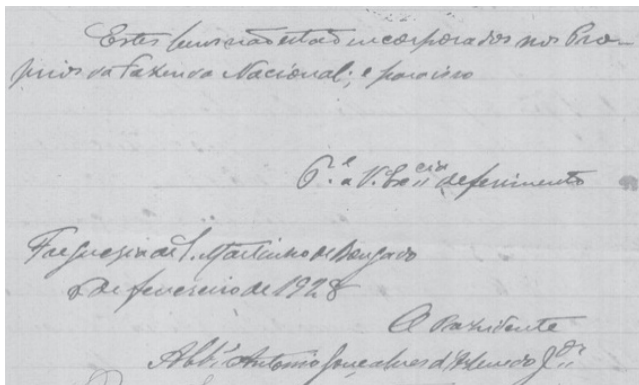 Estes bens não estão incorporados nos Pro-
prios da Fazenda Nacional; e por isso
P.e a V. Ex.cia deferimento
Freguesia de S. Martinho de Bougado
6 de fevereiro de 1928
O Presidente
Abb.e Antonio Gonçalves d'Azevedo J.or